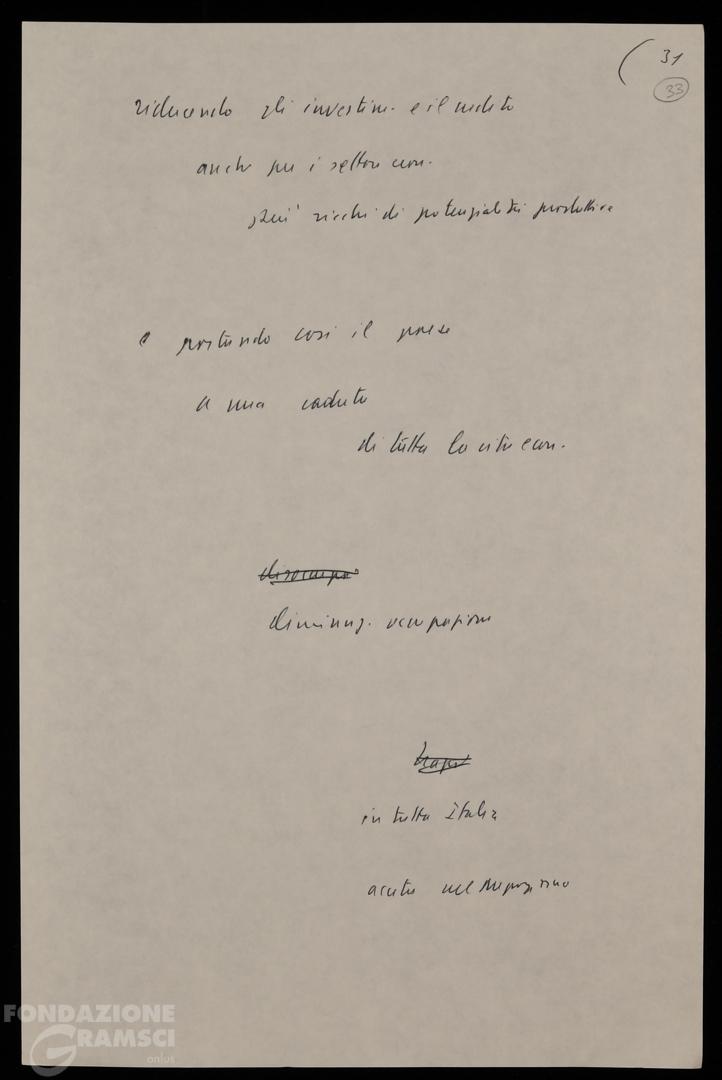 ( 31
33
riducendo gli investim. e il reddito
anche per i settori econ.
più ricchi di potenzialità produttive
e portando così il paese
a una caduta
di tutta la vita econ.
disoccupaz
diminuz. occupazione
in tutta Italia
acuta nel Mezzogiorno
FONDAZIONE
GRAMSCI
onlus